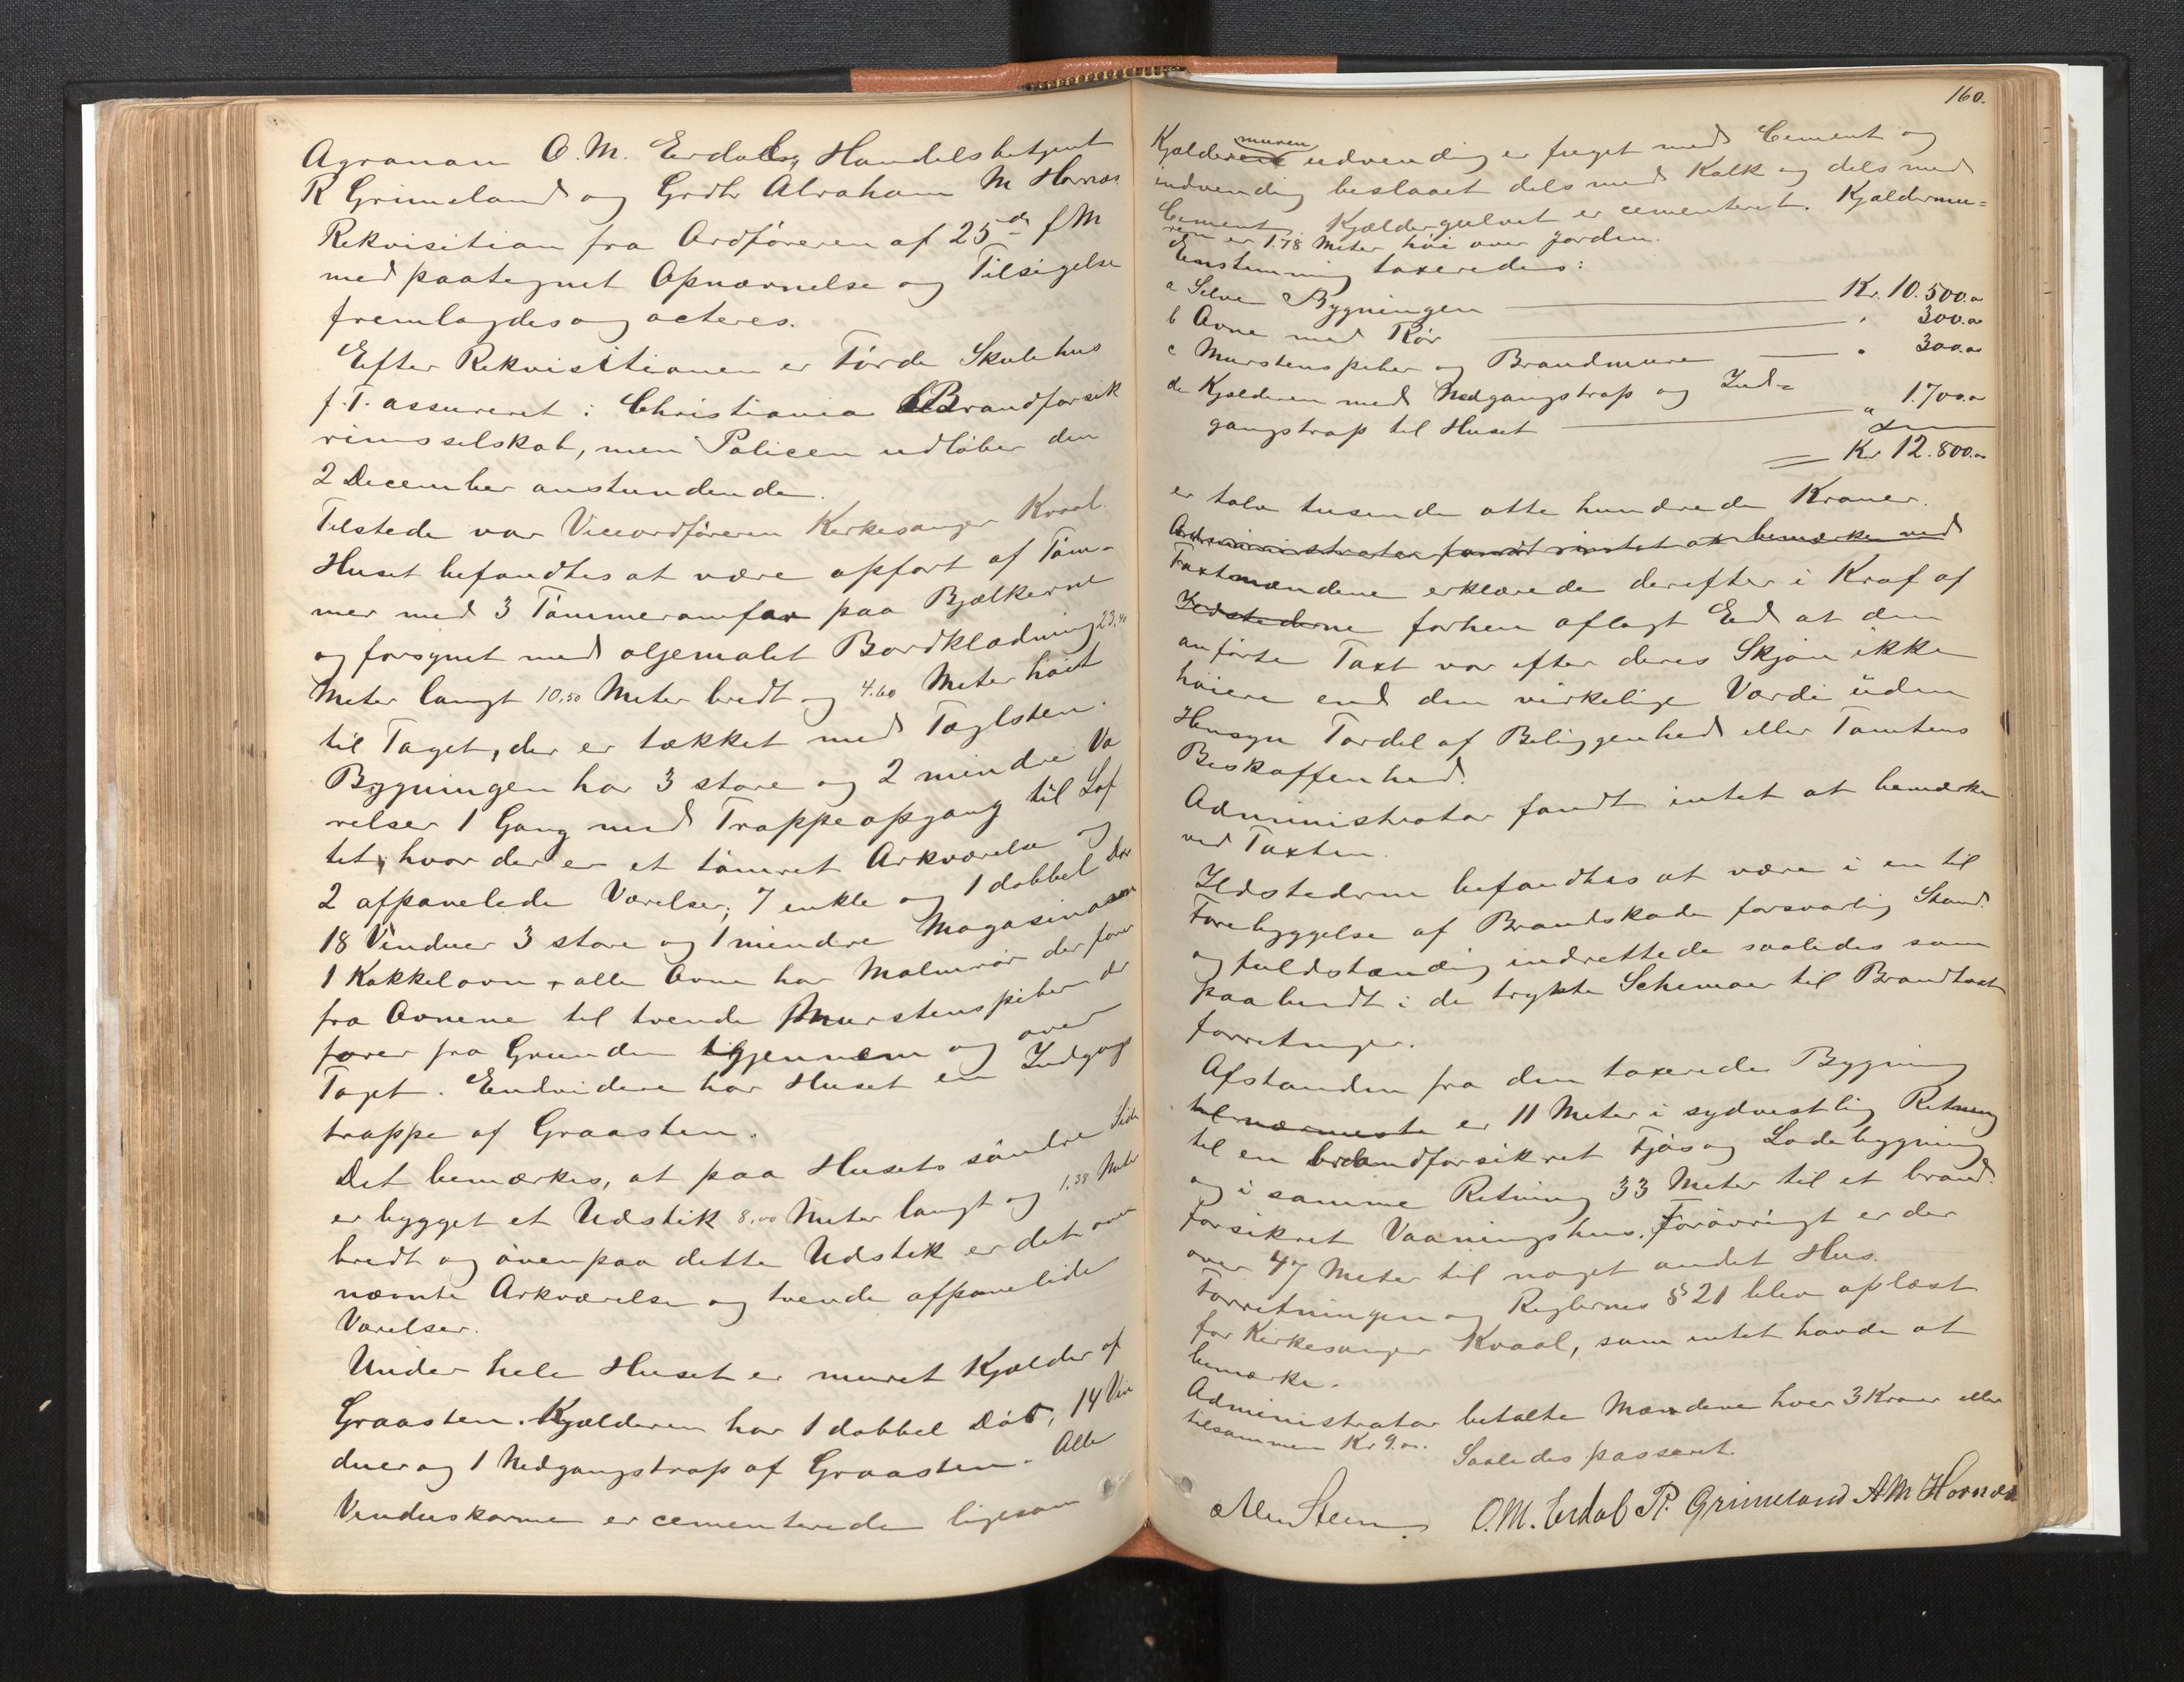 Agronom O. M. Erdal og Handelsbetjent
R Grimeland og Grdbr Abraham M Hornæs
Rekvisition fra Ordføreren af 25de f M
med paategnet Opnævnelse og Tilsigelse
fremlagdes og acteres.
Efter Rekvisitionen er Førde Skulehus
f. T. assureret i Christiania Brandforsik
ringsselskab, men Policen udløber den
2 December anstundende.
Tilstede var Viceordføreren Kirkesanger Kvaal.
Huset befandtes at være opført af Tøm-
mer med 3 Tømmeromfar paa Bjælkerne
og forsynet med oljemalet Bordklædning 23,40
Meter langt 10,50 Meter bredt og 4.60 Meter høit
til Taget, der er tækket med Taglsten.
Bygningen har 3 store og 2 mindre Væ
relser 1 Gang med Trappeopgang til Lof
tet, hvor der er et tømret Arkværelse og
2 afpanelede Værelser, 7 enkle og 1 dobbel Dør
18 Vinduer 3 store og 1 mindre Magasinovn
1 Kakkelovn, alle Ovne har Malmrør der fører
fra Ovnene til tvende Murstenspiber der
fører fra Grunden igjennem og over
Taget. Endvidere har Huset en Indgangs
trappe af Graasten.
Det bemærkes, at paa Husets søndre Side
er bygget et Udstik 8,00 Meter langt og 1,38 Meter
bredt og ovenpaa dette Udstik er det oven
nævnte Arkværelse og tvende afpanelede
Værelser.
Under hele Huset er muret Kjælder af
Graasten. Kjælderen har 1 dobbel Dør, 14 Vin
duer og 1 Nedgangstrap af Graasten. Alle
Vinduskarme er cementerede ligesom
160.
Kjælderen muren udvendig er fuget med Cement og
indvendig beslaaet dels med Kalk og dels med
Cement. Kjældergulvet er cementeret. Kjældermu=
ren er 1.78 Meter høi over Jorden.
Enstemmig taxeredes:
a Selve Bygningen Kr. 10.500.00
b Ovne med Rør " 300.00
c Murstenspiber og Brandmure " 300.00
d Kjælderen med Nedgangstrap og Ind=
gangstrap til Huset " 1.700.00
Kr 12.800.00
er tolv tusende otte hundrede Kroner.
Administrator fandt intet at bemærke ved
Taxtmændene erklærede derefter i Kraf af
Ildstederne forhen aflagt Ed at den
anførte Taxt var efter deres Skjøn ikke
høiere end den virkelige Værdi uden
Hensyn Fordel af Beliggenhed eller Tomtens
Beskaffenhed.
Administrator fandt intet at bemærke
ved Taxten.
Ildstederne befandtes at være i en til
Forebyggelse af Brandskade forsvarlig Stand
og fuldstændig indrettede saaledes som
paabudt i de trykte Schemaer til Brandtaxt
forretninger.
Afstanden fra den taxerede Bygning
til nærmeste er 11 Meter i sydvestlig Retning
til en brandforsikret Fjøs og Ladebygning
og i samme Retning 33 Meter til et brand.
forsikret Vaaningshus. Forøvrigt er der
over 47 Meter til noget andet Hus.
Forretningen og Reglernes § 21 blev oplæst
for Kirkesanger Kvaal, som intet havde at
bemærke.
Administrator betalte Mændene hver 3 Kroner eller
tilsammen Kr 9.00.
Saaledes passeret.
O. M. Erdal R. Grimeland A M Hornæs